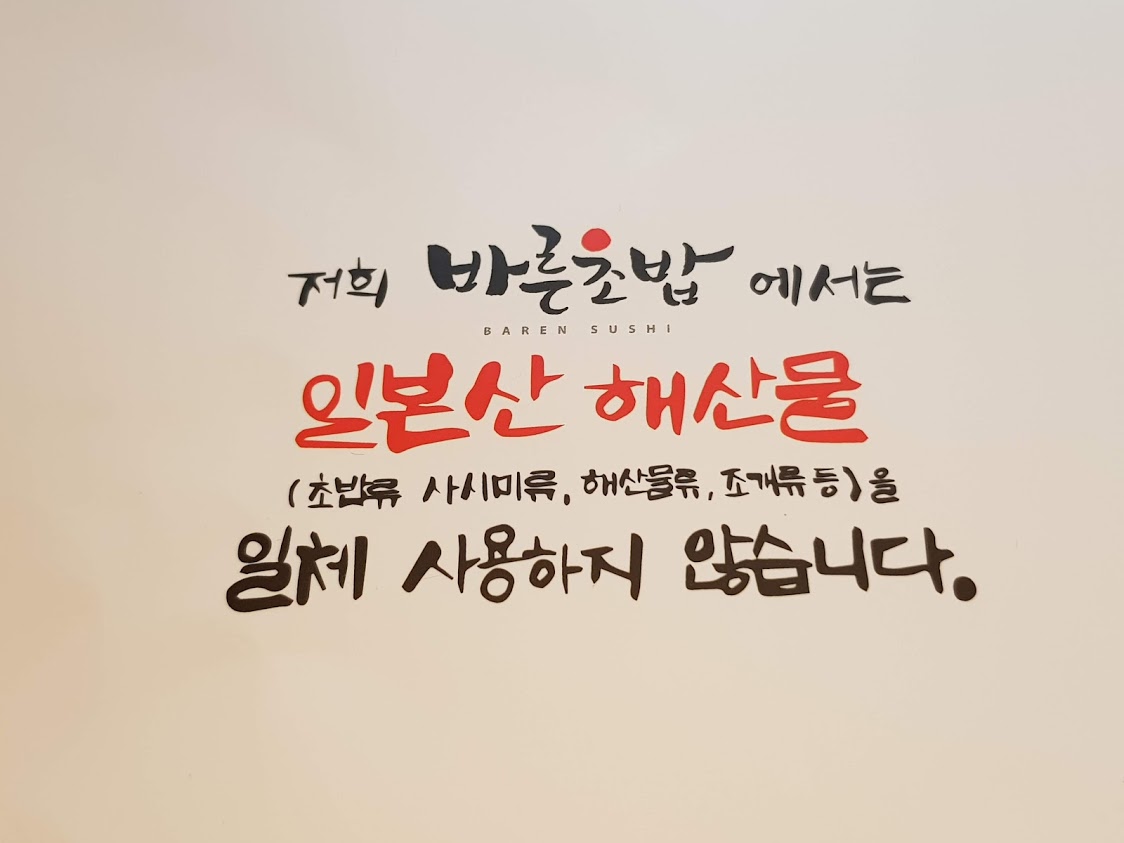 저희 바른초밥에서는
BAREN SUSHi
일본산 해산물
(초밥류 사시미류, 해산물류, 조개류 등)을
일체 사용하지 않습니다.